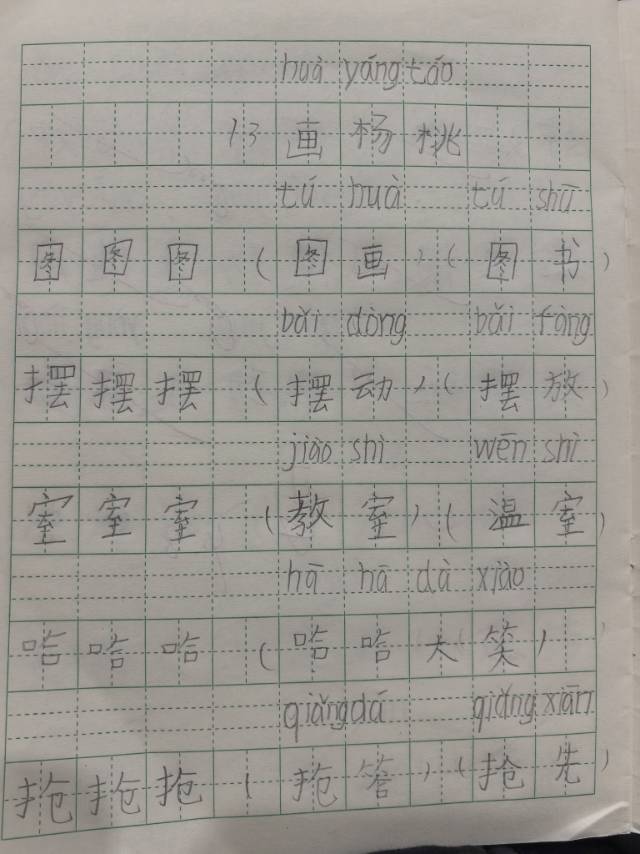 huà yáng táo
13 画杨桃
tú huà tú shū
图图图(图画)(图书)
bǎi dòng bǎi fàng
摆摆摆(摆动)(摆放)
jiào shì wēn shì
室室室(教室)(温室)
hā hā dà xiào
哈哈哈(哈哈大笑)
qiǎng dá qiǎng xiān
抢抢抢(抢答)(抢先)